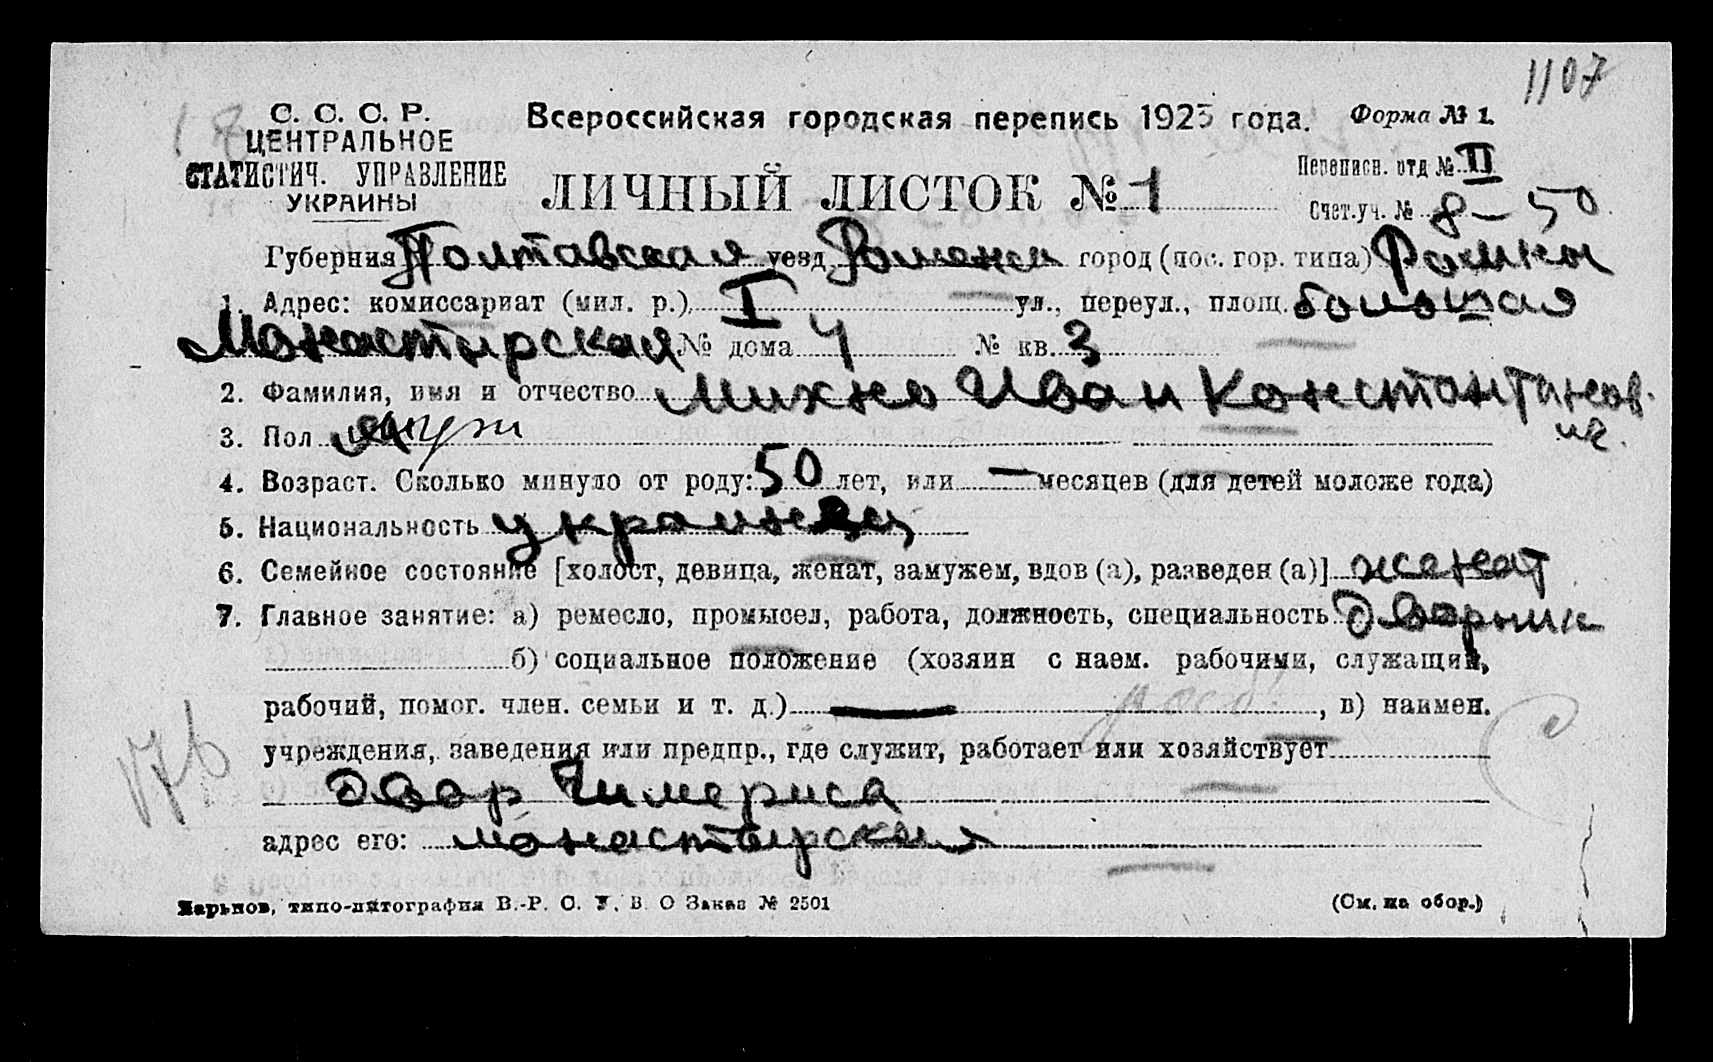 1107
С. С. С. Р.
ЦЕНТРАЛЬНОЕ
СТАТИСТИЧ. УПРАВЛЕНИЕ
УКРАИНЫ
Всероссийская городская перепись 1923 года.
Форма № 1.
ЛИЧНЫЙ ЛИСТОК № 1
Переписн. отд № II
Счет.уч. № 8 — 50
Губерния Полтавская уезд Ромени город (пос. гор. типа) Ромны
1. Адрес: комиссариат (мил. р.) I ул., переул., площ. большая
Монастырская № дома 4 № кв. 3
2. Фамилия, имя и отчество Михно Иван Константинов.
ич.
3. Пол муж
4. Возраст. Сколько минуло от роду: 50 лет, или — месяцев (для детей моложе года)
5. Национальность украинец
6. Семейное состояние [холост, девица, женат, замужем, вдов (а), разведен (а)] женат
7. Главное занятие: а) ремесло, промысел, работа, должность, специальность Дворник
б) социальное положение (хозяин с наем. рабочими, служащий,
рабочий, помог. член. семьи и т. д.) — раб. , в) наимен.
учреждения, заведения или предпр., где служит, работает или хозяйствует
176
Двор Чимериса
адрес его: монастырская
Харьков, типо-литография В.-Р. С. У. В. О Заказ № 2501
(См. на обор.)